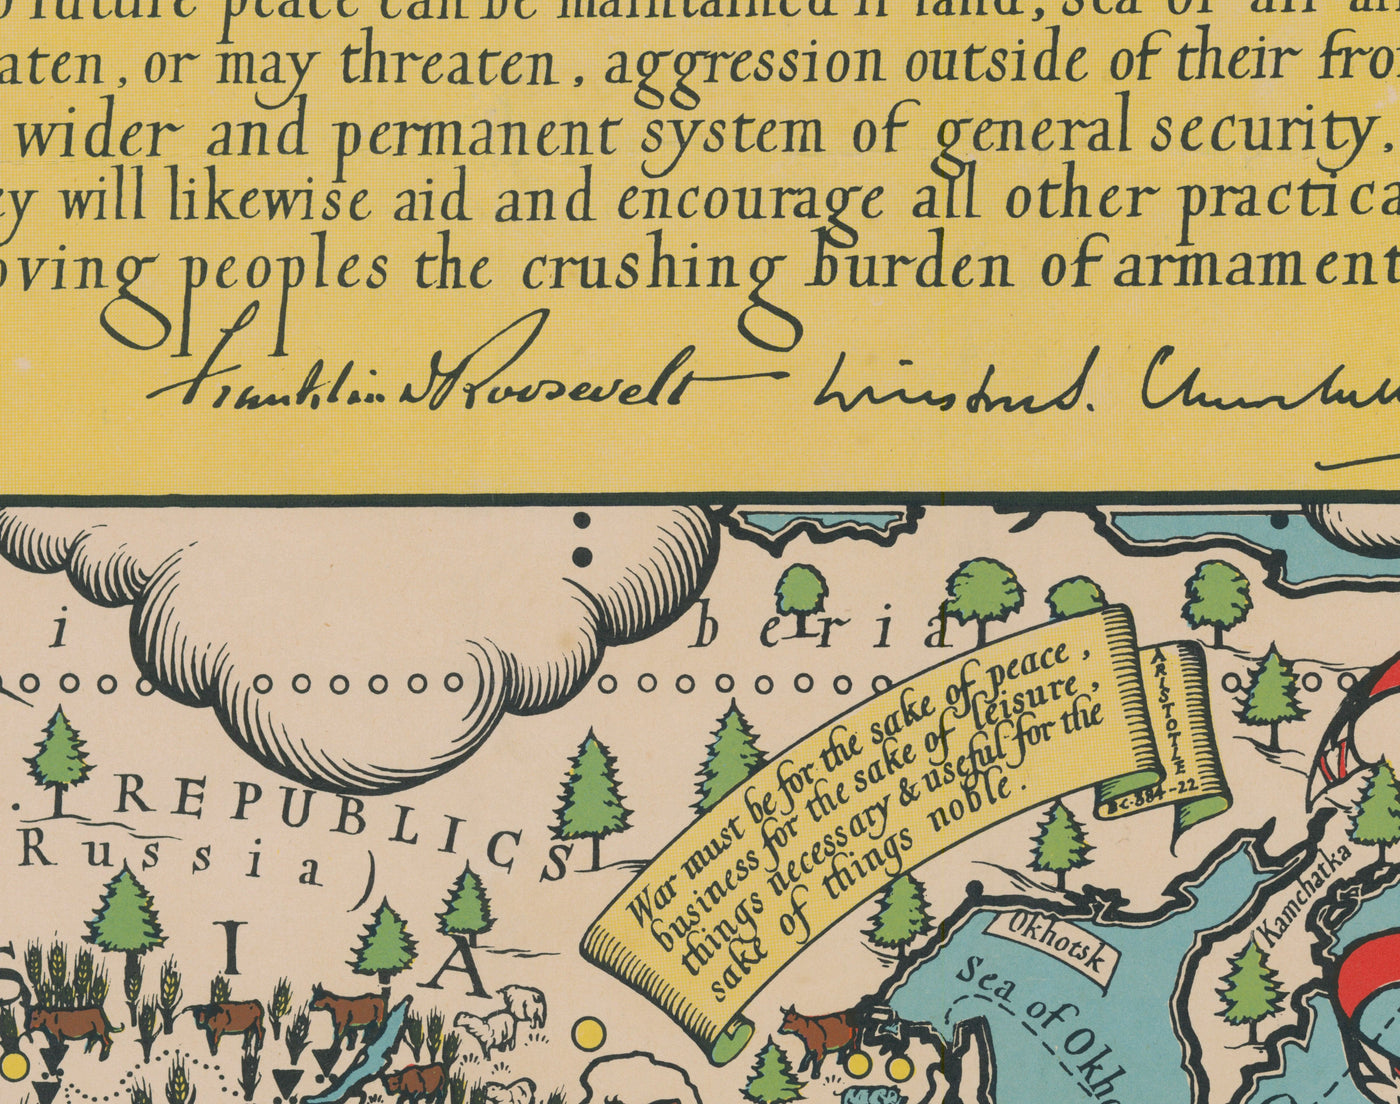 future peace can be maintained if land, sea or air
aten, or may threaten, aggression outside of their fro
wider and permanent system of general security,
ey will likewise aid and encourage all other practica
oving peoples the crushing burden of armament
Franklin D Roosevelt Winston S. Churchill
i beria
REPUBLICS
Russia)
S I A
War must be for the sake of peace,
business for the sake of leisure,
things necessary & useful for the
sake of things noble.
ARISTOTLE
BC·384-22
Kamchatka
Okhotsk
Sea of Okh